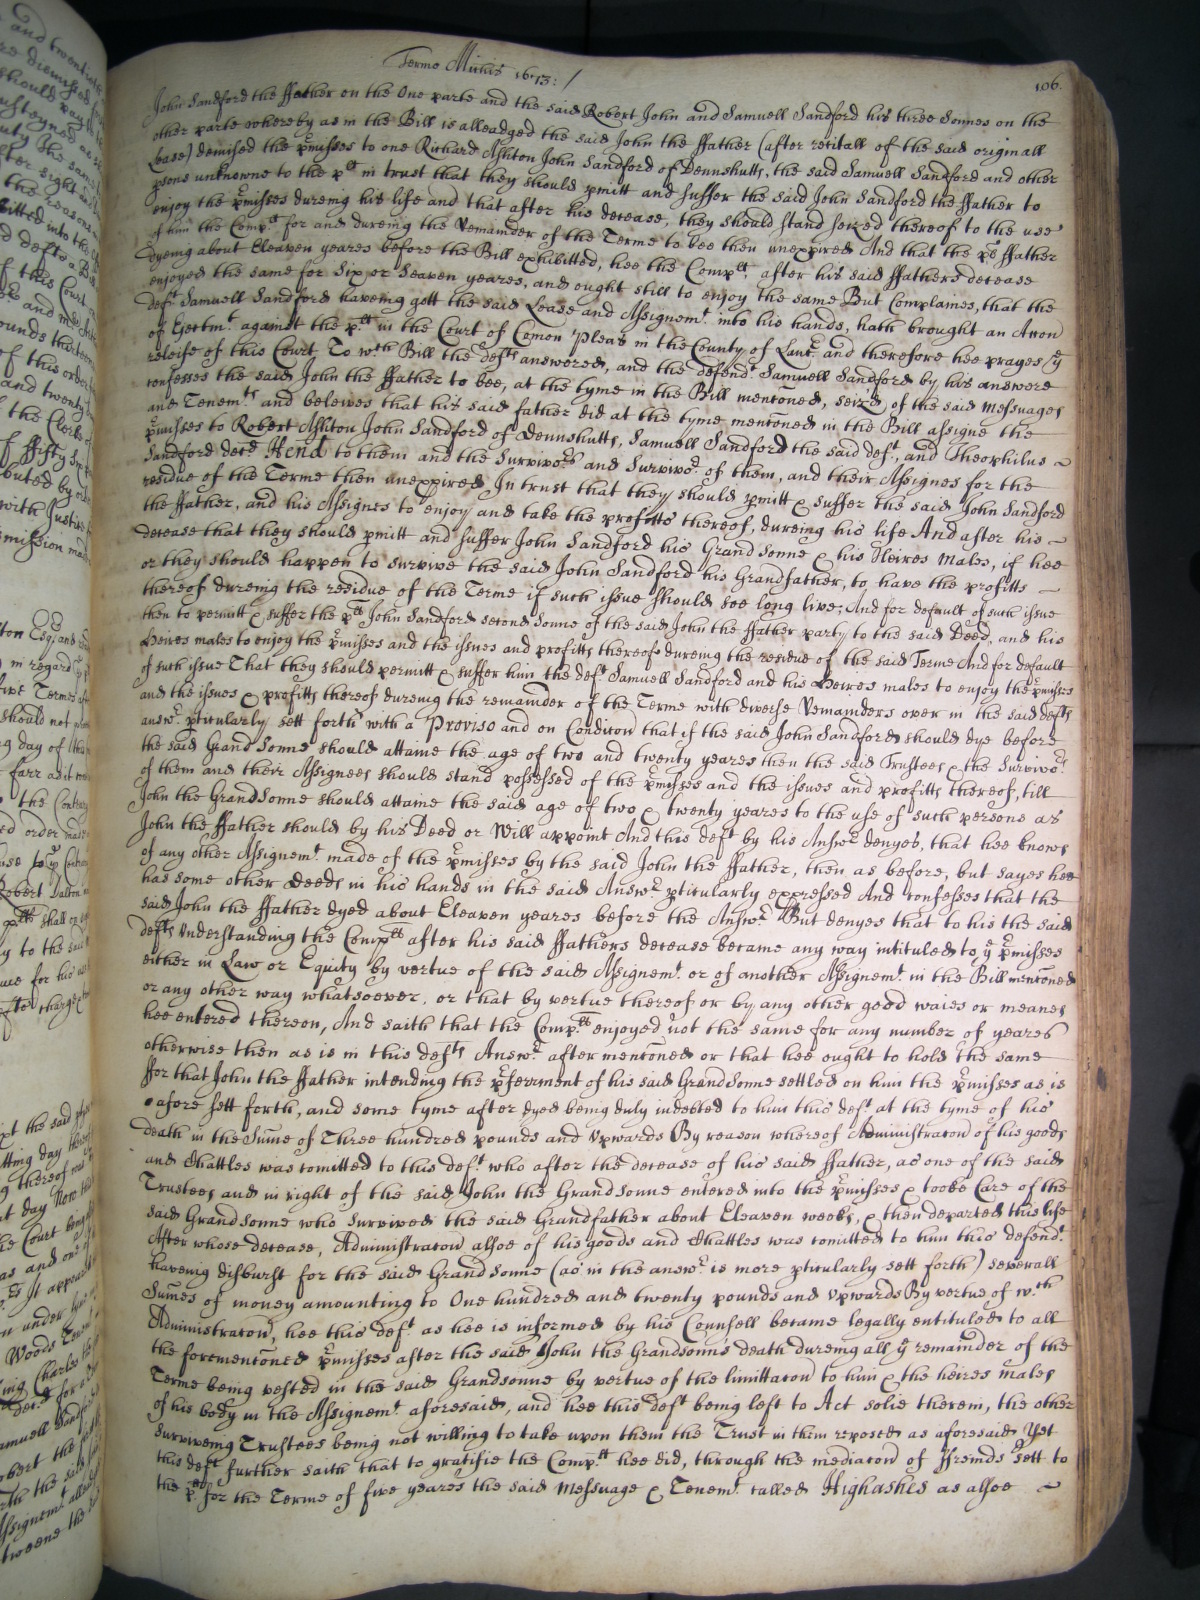 Termo Mich'is 1673: /
106.
John Sandford the ffather on the One parte and the said Robert John and Samuell Sandford his three Sonnes on the
other parte whereby as in the Bill is alleadged the said John the ffather (after recitall of the said originall
Lease) demised the p'misses to one Richard Ashton John Sandford of Dennshutts, the said Samuell Sandford and other
p'sons unknowne to the p'lt in trust that they should p'mitt and suffer the said John Sandford the ffather to
enjoy the p'misses dureing his life and that after his decease, they should stand seized thereof to the use
of him the Comp'lt for and dureing the Remainder of the Terme to bee then unexpired And that the p'ls ffather
dyeing about Eleaven yeares before the Bill exhibitted, hee the Comp'lt after his said ffathers decease
enjoyed the same for Six or Seaven yeares, and ought still to enjoy the same But Complaines, that the
def't Samuell Sandford haveing gott the said Lease and Assignem't into his hands, hath brought an Accon
of Ejectm't against the p'lt in the Court of Comon Pleas in the County of Lanc'r and therefore hee prayes y'e
releife of this Court, To w'ch Bill the def'ts answered, and the defend't Samuell Sandford by his answere
confesses the said John the ffather to bee, at the tyme in the Bill menconed, seized of the said Messuages
and Tenem'ts and beleives that his said father did at the tyme menconed in the Bill assigne the
p'misses to Robert Ashton John Sandford of Dennshutts, Samuell Sandford the said def't, and Theophilus ~
Sandford decd Hend to them and the Survivo'rs and Survivo'r of them, and their Assignes for the
residue of the Terme then unexpired In trust that they should p'mitt & suffer the said John Sandford
the ffather, and his Assignes to enjoy and take the profitts thereof, dureing his life And after his ~
decease that they should p'mitt and suffer John Sandford his Grand Sonne & his Heires Males, if hee
or they should happen to survive the said John Sandford his Grandfather, to have the profitts ~
thereof dureing the residue of the Terme if such issue should soe long live; And for default of such issue
then to permitt & suffer the p'lt John Sandford second Sonne of the said John the ffather party to the said Deed, and his
Heires males to enjoy the p'misses and the issues and profitts thereof dureing the residue of the said Terme And for default
of such issue That they should permitt & suffer him the def't Samuell Sandford and his Heires males to enjoy the p'misses
and the issues & profitts thereof dureing the remainder of the Terme with diverse Remainders over in the said def'ts
answ'r p'ticularly sett forth with a Proviso and on Condicon that if the said John Sandford should dye before
the said Grand Sonne should attaine the age of two and twenty yeares then the said Trustees & the Survivo'r
of them and their Assignees should stand possessed of the p'misses and the issues and profitts thereof, till
John the GrandSonne should attaine the said age of two & twenty yeares to the use of such persons as
John the ffather should by his Deed or Will appoint And this def't by his Answ'r denyes, that hee knows
of any other Assignem't made of the p'misses by the said John the ffather, then as before, but sayes hee
has some other Deeds in his hands in the said Answ'r p'ticularly expressed And confesses that the
said John the ffather dyed about Eleaven yeares before the Answ'r But denyes that to his the said
def'ts Understanding the Comp'lt after his said ffathers decease became any way intituled to y'e p'misses
either in Law or Equity by vertue of the said Assignem't or of another Assignem't in the Bill menconed
or any other way whatsoever, or that by vertue thereof or by any other good waies or meanes
hee entered thereon, And saith that the Comp'lt enjoyed not the same for any number of yeares
otherwise then as is in this def'ts Answ'r after menconed or that hee ought to hold the same
ffor that John the ffather intending the p'ferrment of his said GrandSonne settled on him the p'misses as is
afore sett forth, and some tyme after dyed being duly indebted to him this def't at the tyme of his
death in the Sume of Three hundred pounds and Upwards By reason whereof Administracon of his goods
and Chattles was comitted to this def't who after the decease of his said ffather, as one of the said
Trustees and in right of the said John the GrandSonne entered into the p'misses & tooke Care of the
said GrandSonne who Survived the said Grandfather about Eleaven weeks, & then departed this life
After whose decease, Administracon alsoe of his goods and Chattles was comitted to him this defend't
haveing disburst for the said GrandSonne (as in the answ'r is more p'ticularly sett forth) severall
Sumes of money amounting to One hundred and twenty pounds and Upwards By vertue of w'ch
Administracon, hee this def't as hee is informed by his Counsell became legally entituled to all
the forementoned p'misses after the said John the Grandsonns death dureing all y'e remainder of the
Terme being vested in the said Grandsonne by vertue of the limittacon to him & the heires males
of his body in the Assignem't aforesaid, and hee this def't being left to Act solie therein, the other
surviveing Trustees being not willing to take upon them the Trust in them reposed as aforesaid Yet
this def't further saith that to gratifie the Comp'lt hee did, through the mediacon of ffreinds sett to
the p'lt for the Terme of five yeares the said Messuage & Tenem't called Highashes as alsoe ~